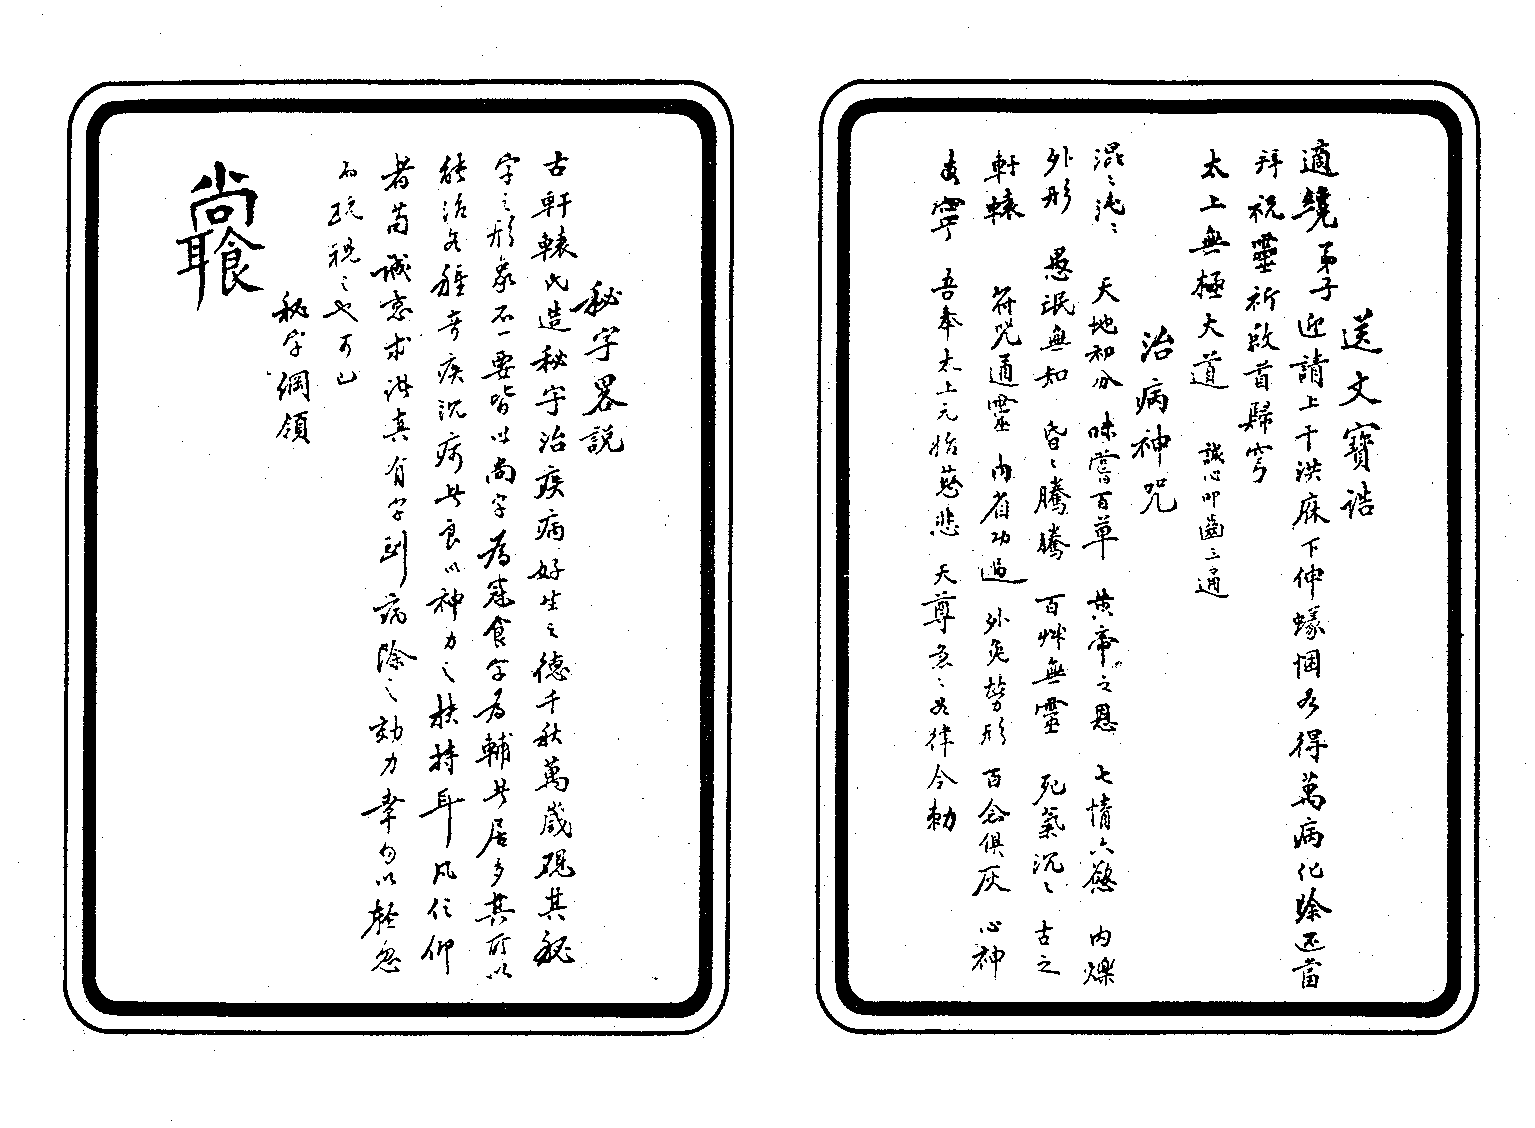 送文寶誥
適纔弟子迎請上干洪庥下伸蟻悃為得萬病化除還當
拜祝靈祈啟首歸穹
太上無極大道 誠心叩齒三通
治病神咒
混混沌沌 天地初分 味嘗百草 黃帝之恩 七情六慾 內爍
外形 愚氓無知 昏昏騰騰 百草無靈 死氣沉沉 古之
軒轅 符咒通靈 內省功過 外免勞形 百念俱灰 心神
安寧 吾奉太上元始慈悲 天尊急急如律令勅
秘字畧説
古軒轅氏造秘字治疾病好生之德千秋萬歲硯其秘
字之形象不一要皆以尚字為冠食字為輔共居多其所以
能治各種奇疾沉疴者良以神力之扶持耳凡信仰
者苟誠意求法真有字到病除之効力幸勿以輕忽
而玩視之也可已
秘字綱領